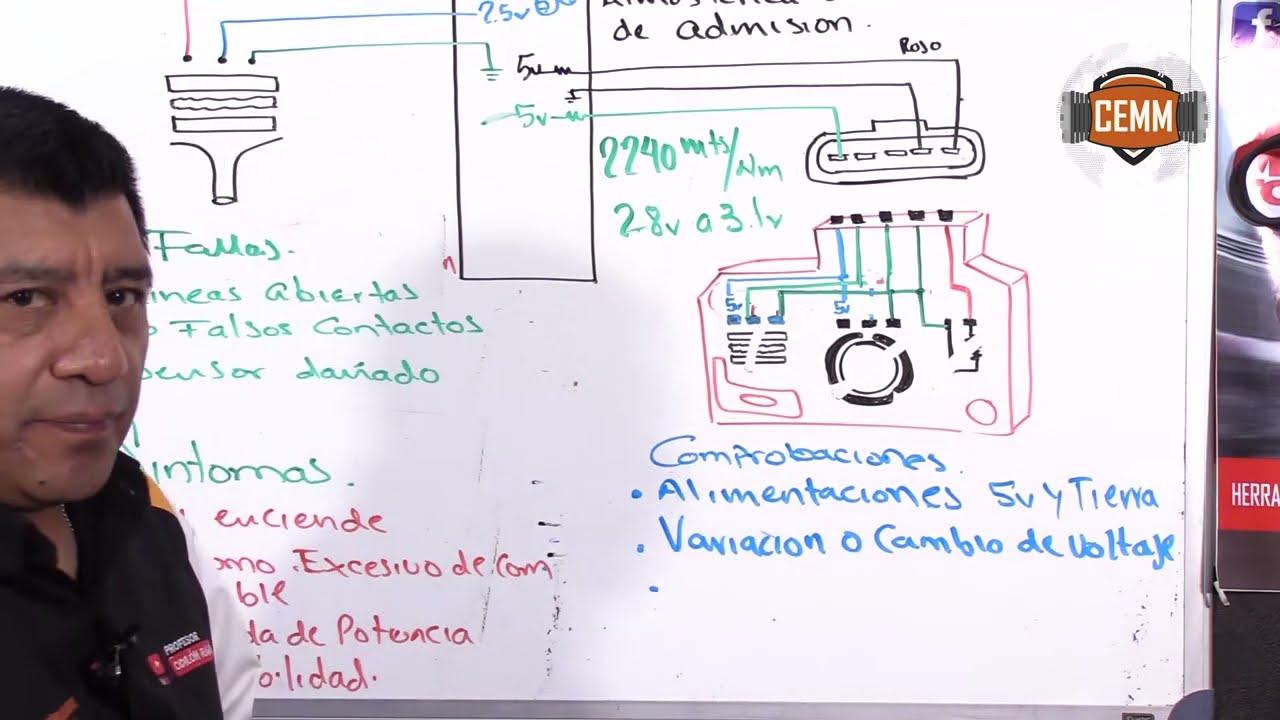 2.5v
de admision.
5v
Rojo
5v
2240 mts/Nm
2.8v a 3.1v
CEMM
Fallas.
ineas abiertas
Falsos Contactos
sensor dañado
5v
5v
intomas.
enciende
mo Excesivo de Com
ble
da de Potencia
ilidad.
Comprobaciones.
• Alimentaciones 5v y Tierra
• Variacion o Cambio de Voltaje
•
HERRA
PROFESOR